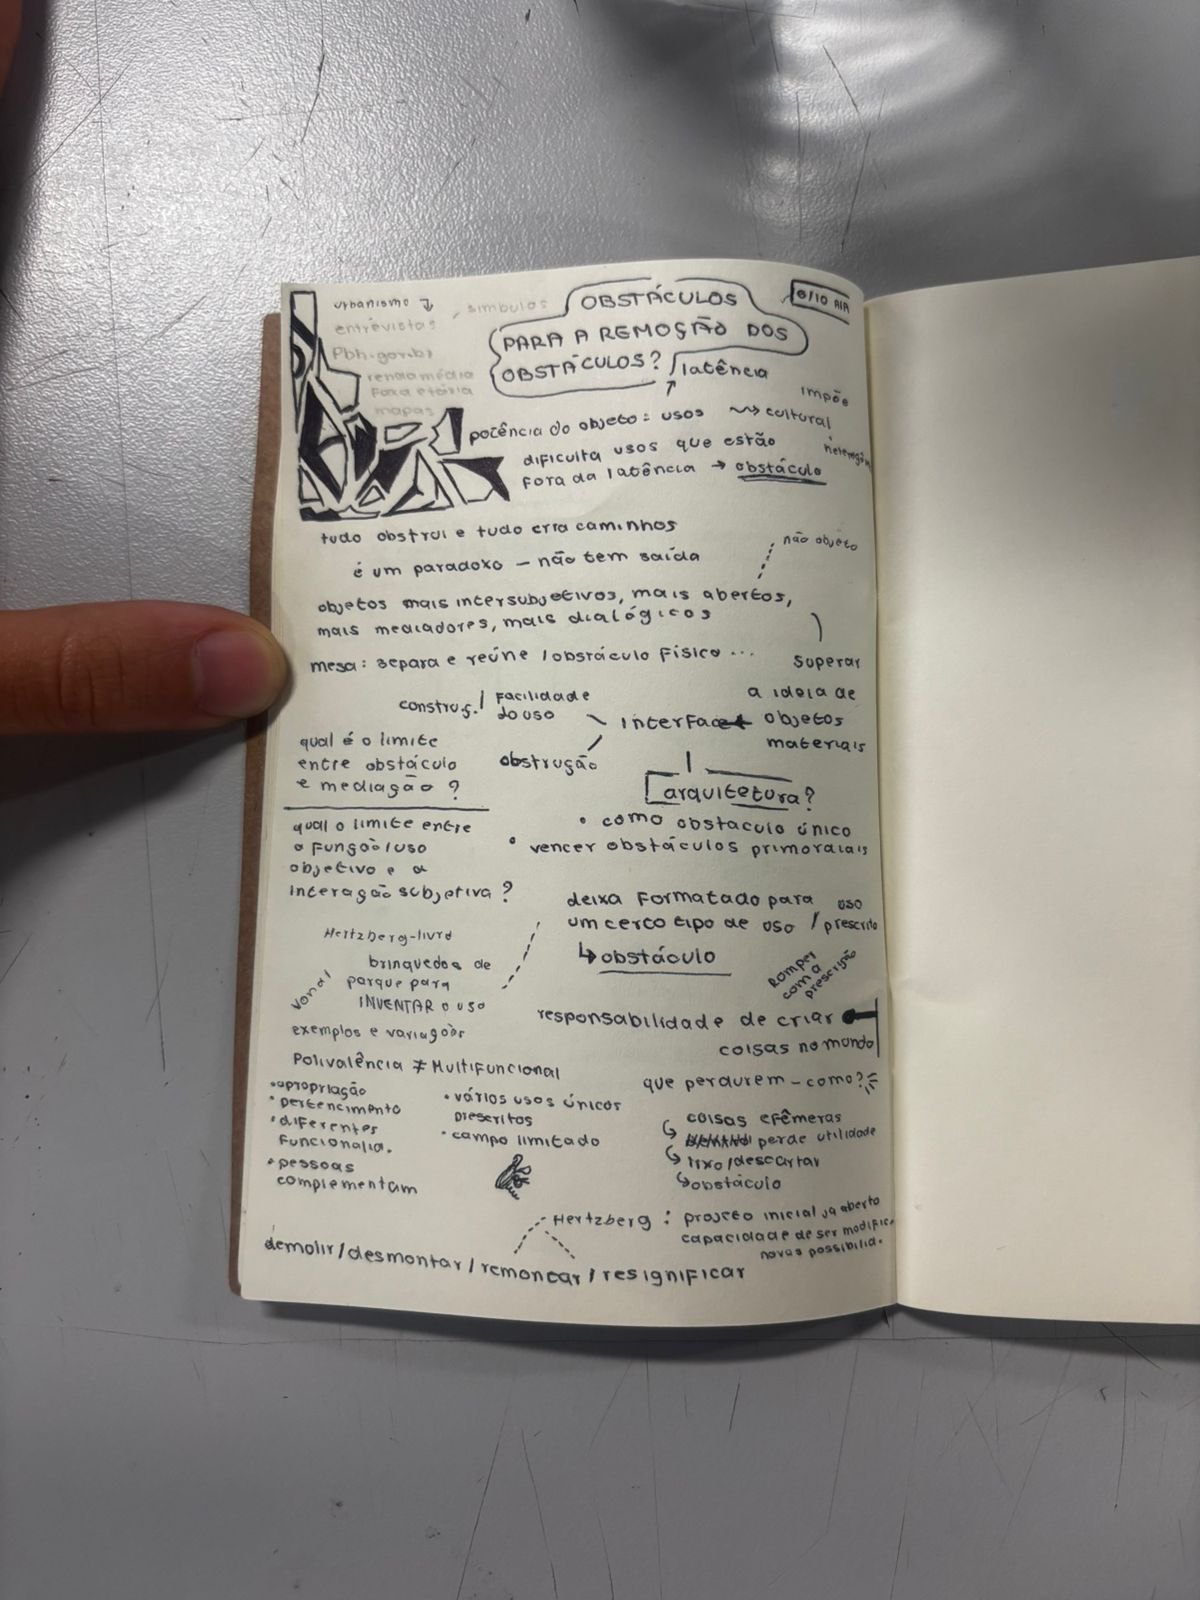 urbanismo ↴
entrevistas, símbolos
Pbh.gov.br
renda média
Faxa etária
mapas
6/10 AIA
OBSTÁCULOS
PARA A REMOÇÃO DOS
OBSTÁCULOS?
latência
potência do objeto: usos ↝ cultural
impõe
dificulta usos que estão
fora da latência → obstáculo
tudo obstrui e tudo cria caminhos
é um paradoxo — não tem saída
não objeto
objetos mais intersubjetivos, mais abertos,
mais mediadores, mais dialógicos
mesa: separa e reúne / obstáculo físico ...
superar
a ideia de
objetos
materiais
construç. / facilidade
do uso
interface
obstrução
qual é o limite
entre obstáculo
e mediação?
arquitetura?
• como obstaculo único
• vencer obstáculos primordiais
qual o limite entre
a função/uso
objetivo e a
interação subjetiva?
deixa formatado para
um certo tipo de uso / uso prescrito
↳ obstáculo
Romper
com a
prescrição
Hertzberg-livro
brinquedos de
parque para
INVENTAR o uso
exemplos e variações
responsabilidade de criar
coisas no mundo
que perdurem — como?
Polivalência ≠ Multifuncional
• apropriação
• pertencimento
• diferentes
funcionalia.
• pessoas
complementam
• vários usos únicos
prescritos
• campo limitado
coisas efêmeras
↳ perde utilidade
↳ lixo/descartar
↳ obstáculo
Hertzberg: projeto inicial já aberto
capacidade de ser modific.
novas possibilid.
demolir/desmontar/remontar/resignificar